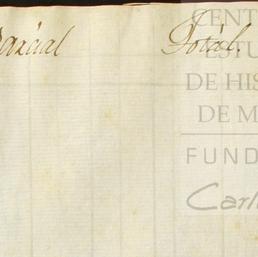 Parcial Total.
CENT
ESTU
DE HIS
DE M
FUND
Carl